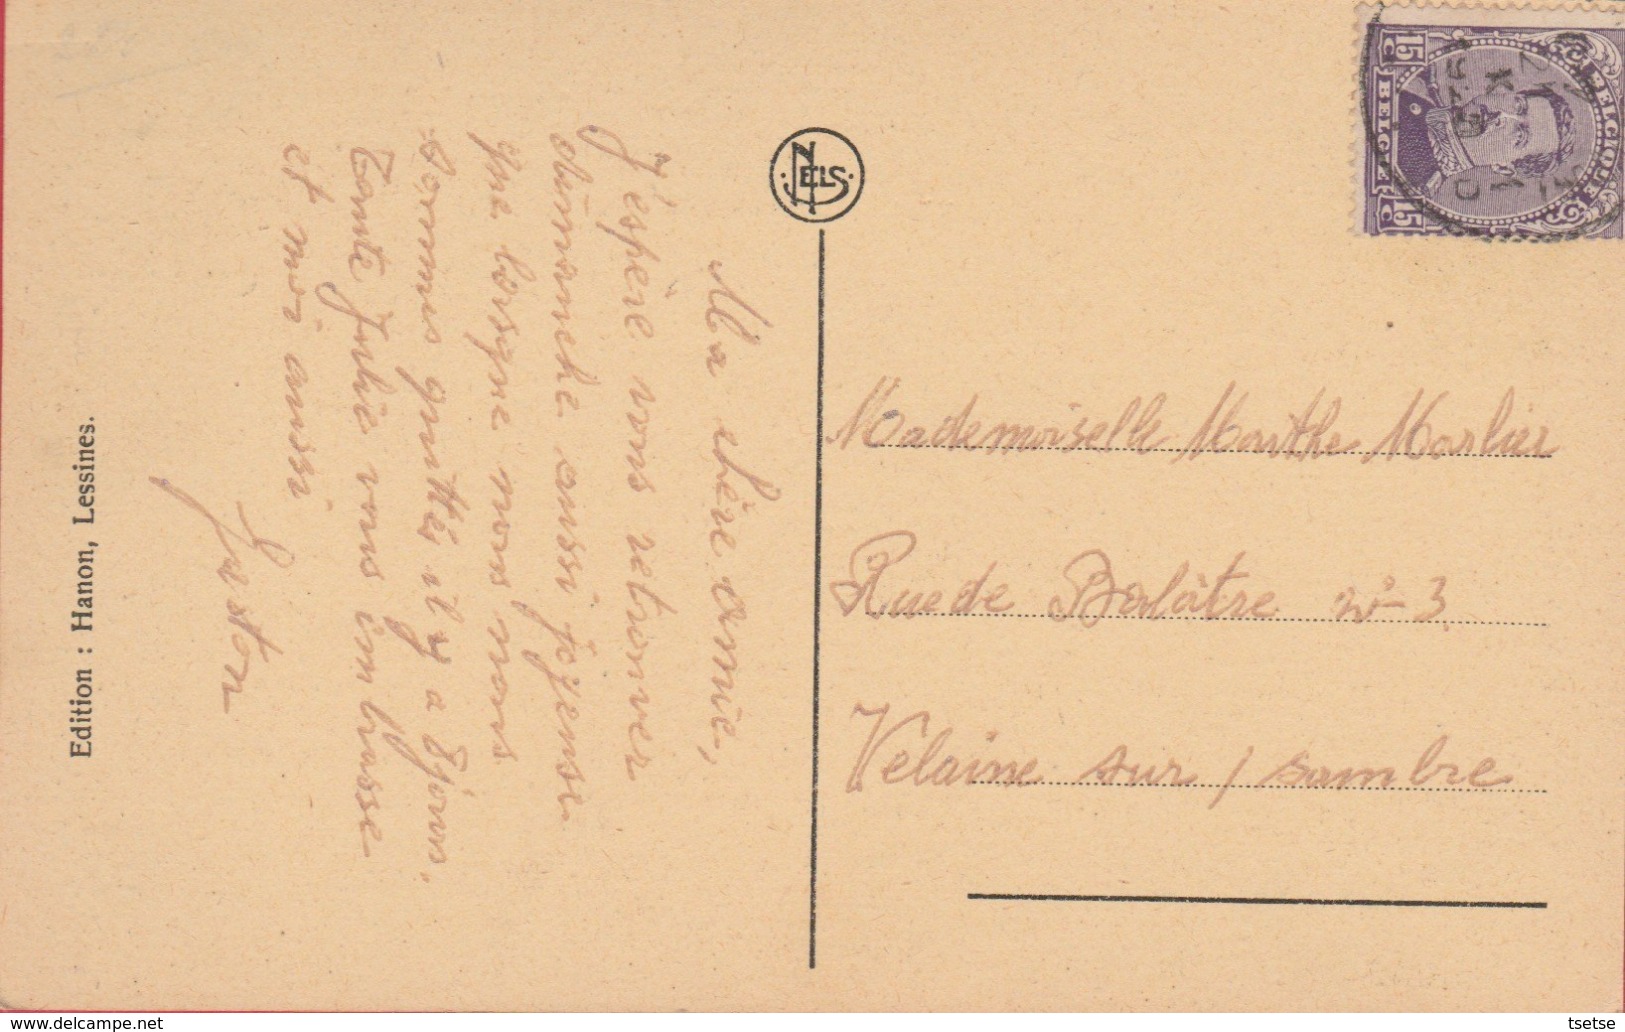 Ma chère amie,
J'espère vous retrouver
dimanche aussi joyeuse
que lorsque nous nous
sommes quittés il y a 8 jours.
Tante Julie vous embrasse
et moi aussi
Gaston
Mademoiselle Marthe Morlier
Rue de Balâtre n° 3
Velaine sur / sambre
NELS
Edition : Hanon, Lessines.
BELGIQUE
BELGIE
15 C
15 C
21
X
1920
tsetse